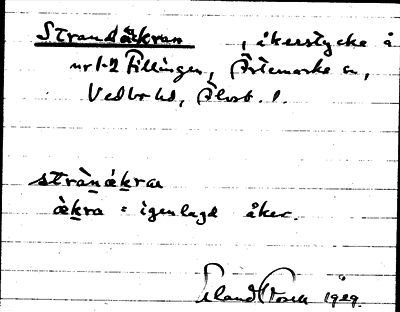 Strandäkran, åkerstycke å
nr 1-2 Fillingen, Ärtemarks sn,
Vedbo hd, Älvsb. l.
strànǽkra
ǽkra = igenlagd åker.
Erland Rosell 1929